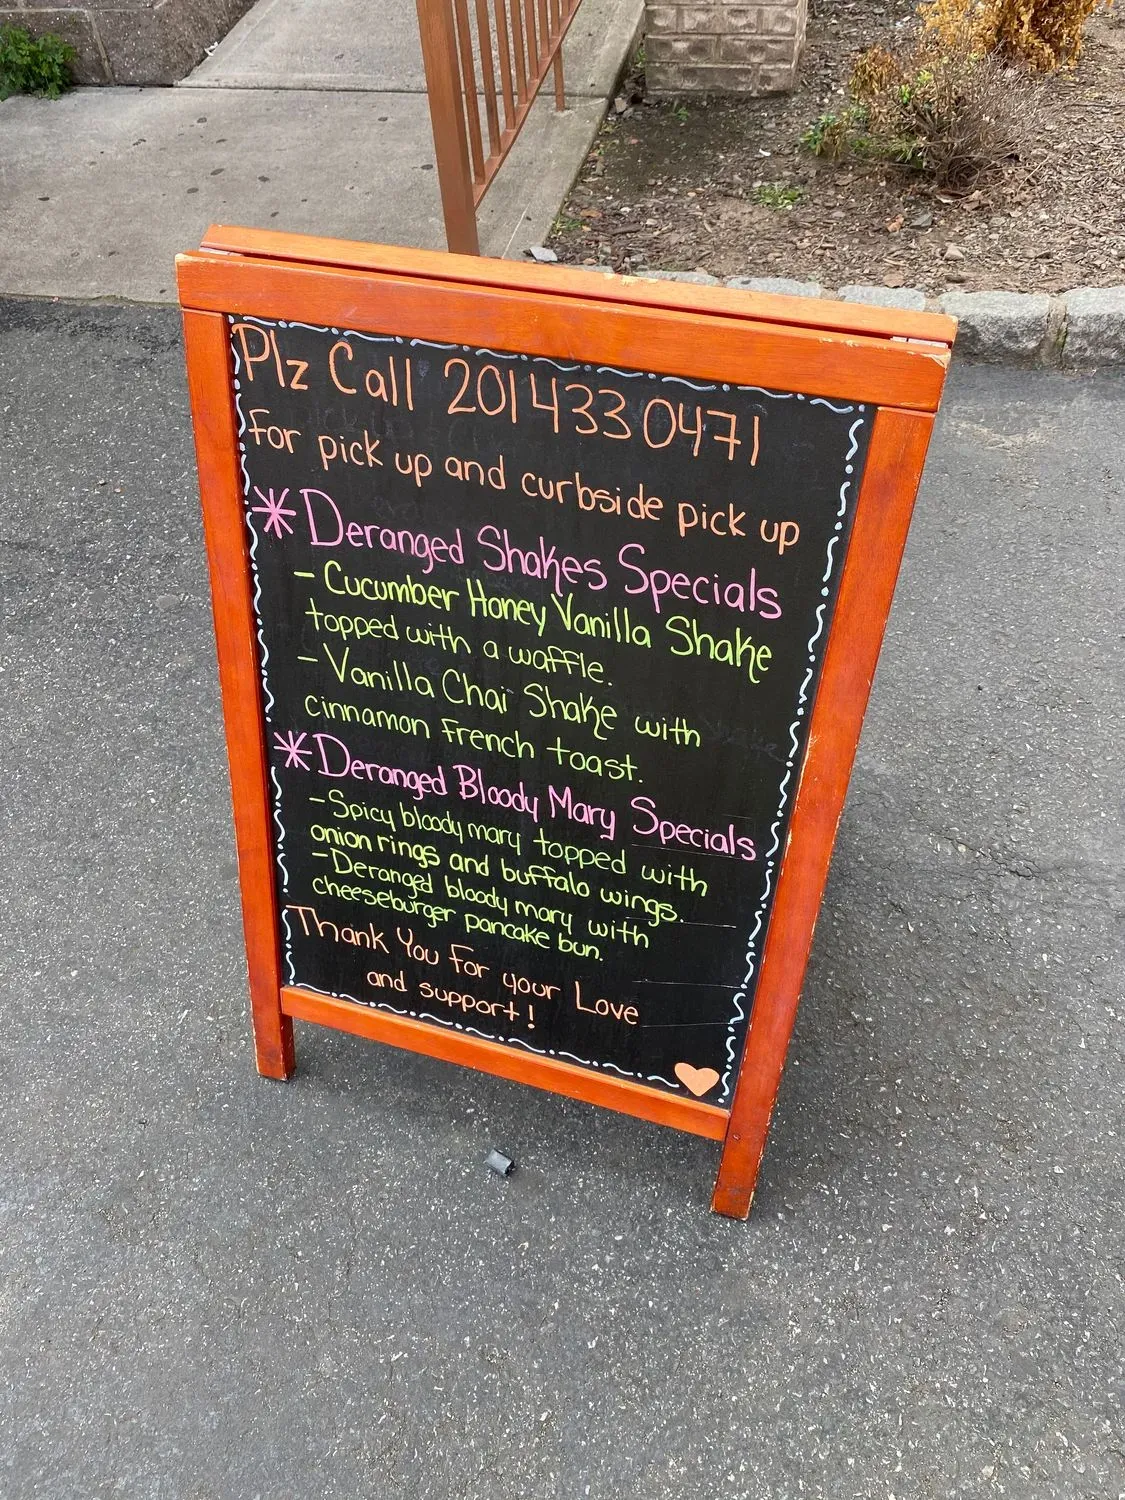 Plz Call 2014330471
For pick up and curbside pick up
* Deranged Shakes Specials
- Cucumber Honey Vanilla Shake
topped with a waffle.
- Vanilla Chai Shake with
cinnamon French toast.
* Deranged Bloody Mary Specials
- Spicy bloody mary topped with
onion rings and buffalo wings.
- Deranged bloody mary with
cheeseburger pancake bun.
Thank You For your Love
and support!